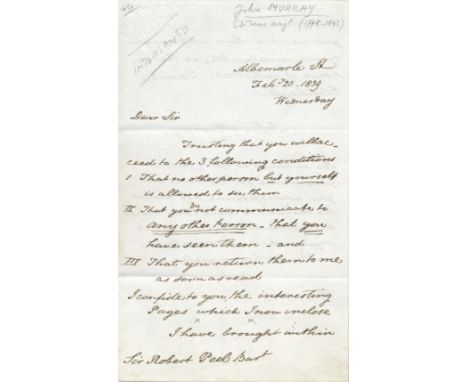 John MURRAY
Editeur angl. (1778-1843)
IMPORTANTE
Albemarle St
Feby 20. 1839
Wednesday
Dear Sir
Trusting that you will ac-
ceed to the 3, following conditions
I That no other person but yourself
is allowed to see them
II That you do not communicate to
any other Person - that you
have seen them - and
III That you return them to me
as soon as read
I confide to you, the interesting
Pages which I now inclose
I have brought within
Sir Robert Peel Bart